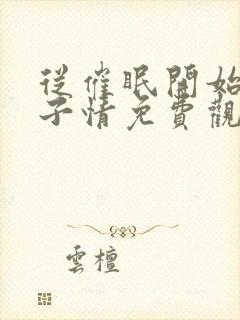 從催眠開始
子情免費觀
雲檀